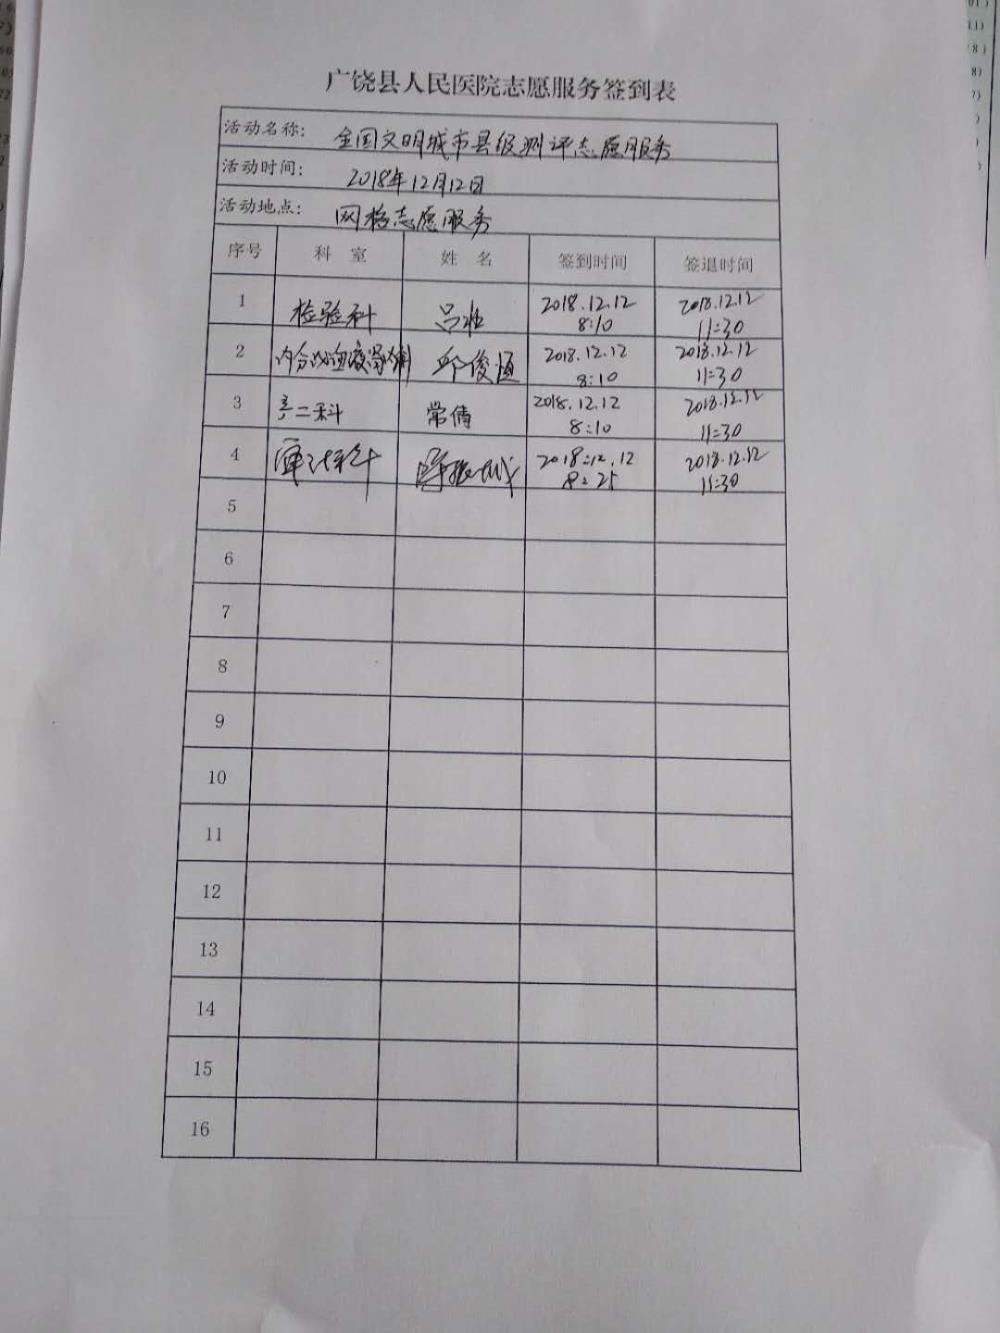 广饶县人民医院志愿服务签到表
活动名称: 全国文明城市县级测评志愿服务
活动时间: 2018年12月12日
活动地点: 网格志愿服务
序号 科 室 姓 名 签到时间 签退时间
1 检验科 2018.12.12 8:10 2018.12.12 11:30
2 邱俊恒 2018.12.12 8:10 2018.12.12 11:30
3 产二科 常倩 2018.12.12 8:10 2018.12.12 11:30
4 审计科 2018.12.12 8:25 2018.12.12 11:30
5
6
7
8
9
10
11
12
13
14
15
16